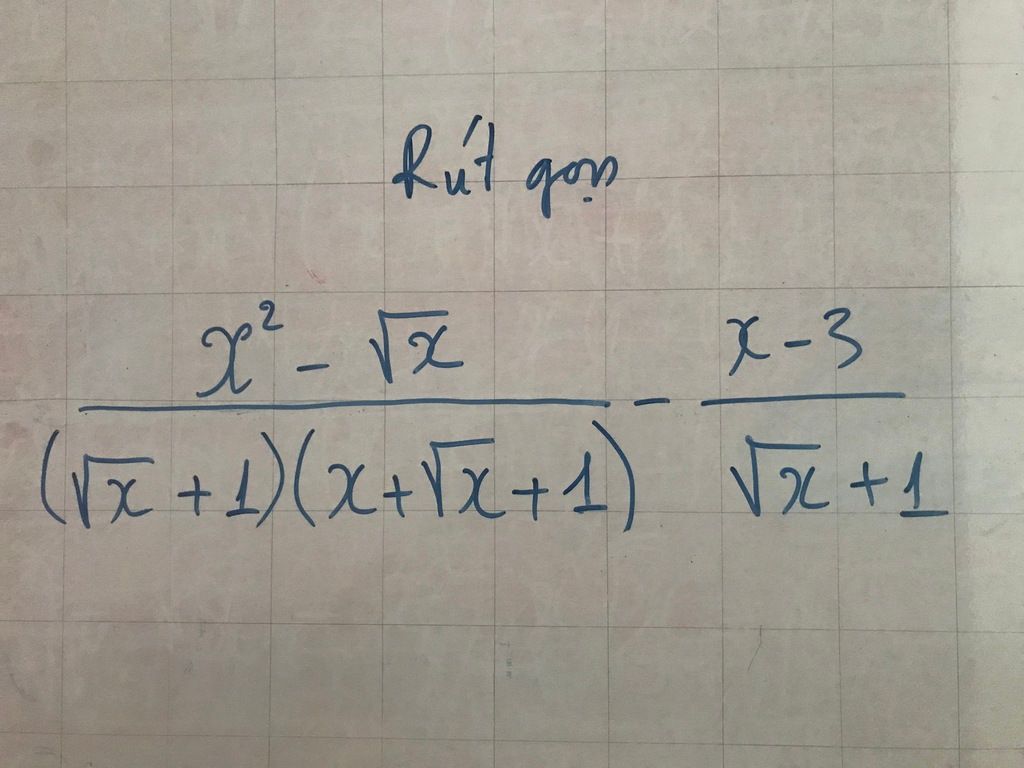 Rút gọn
x² - √x / (√x + 1)(x + √x + 1) - x - 3 / √x + 1